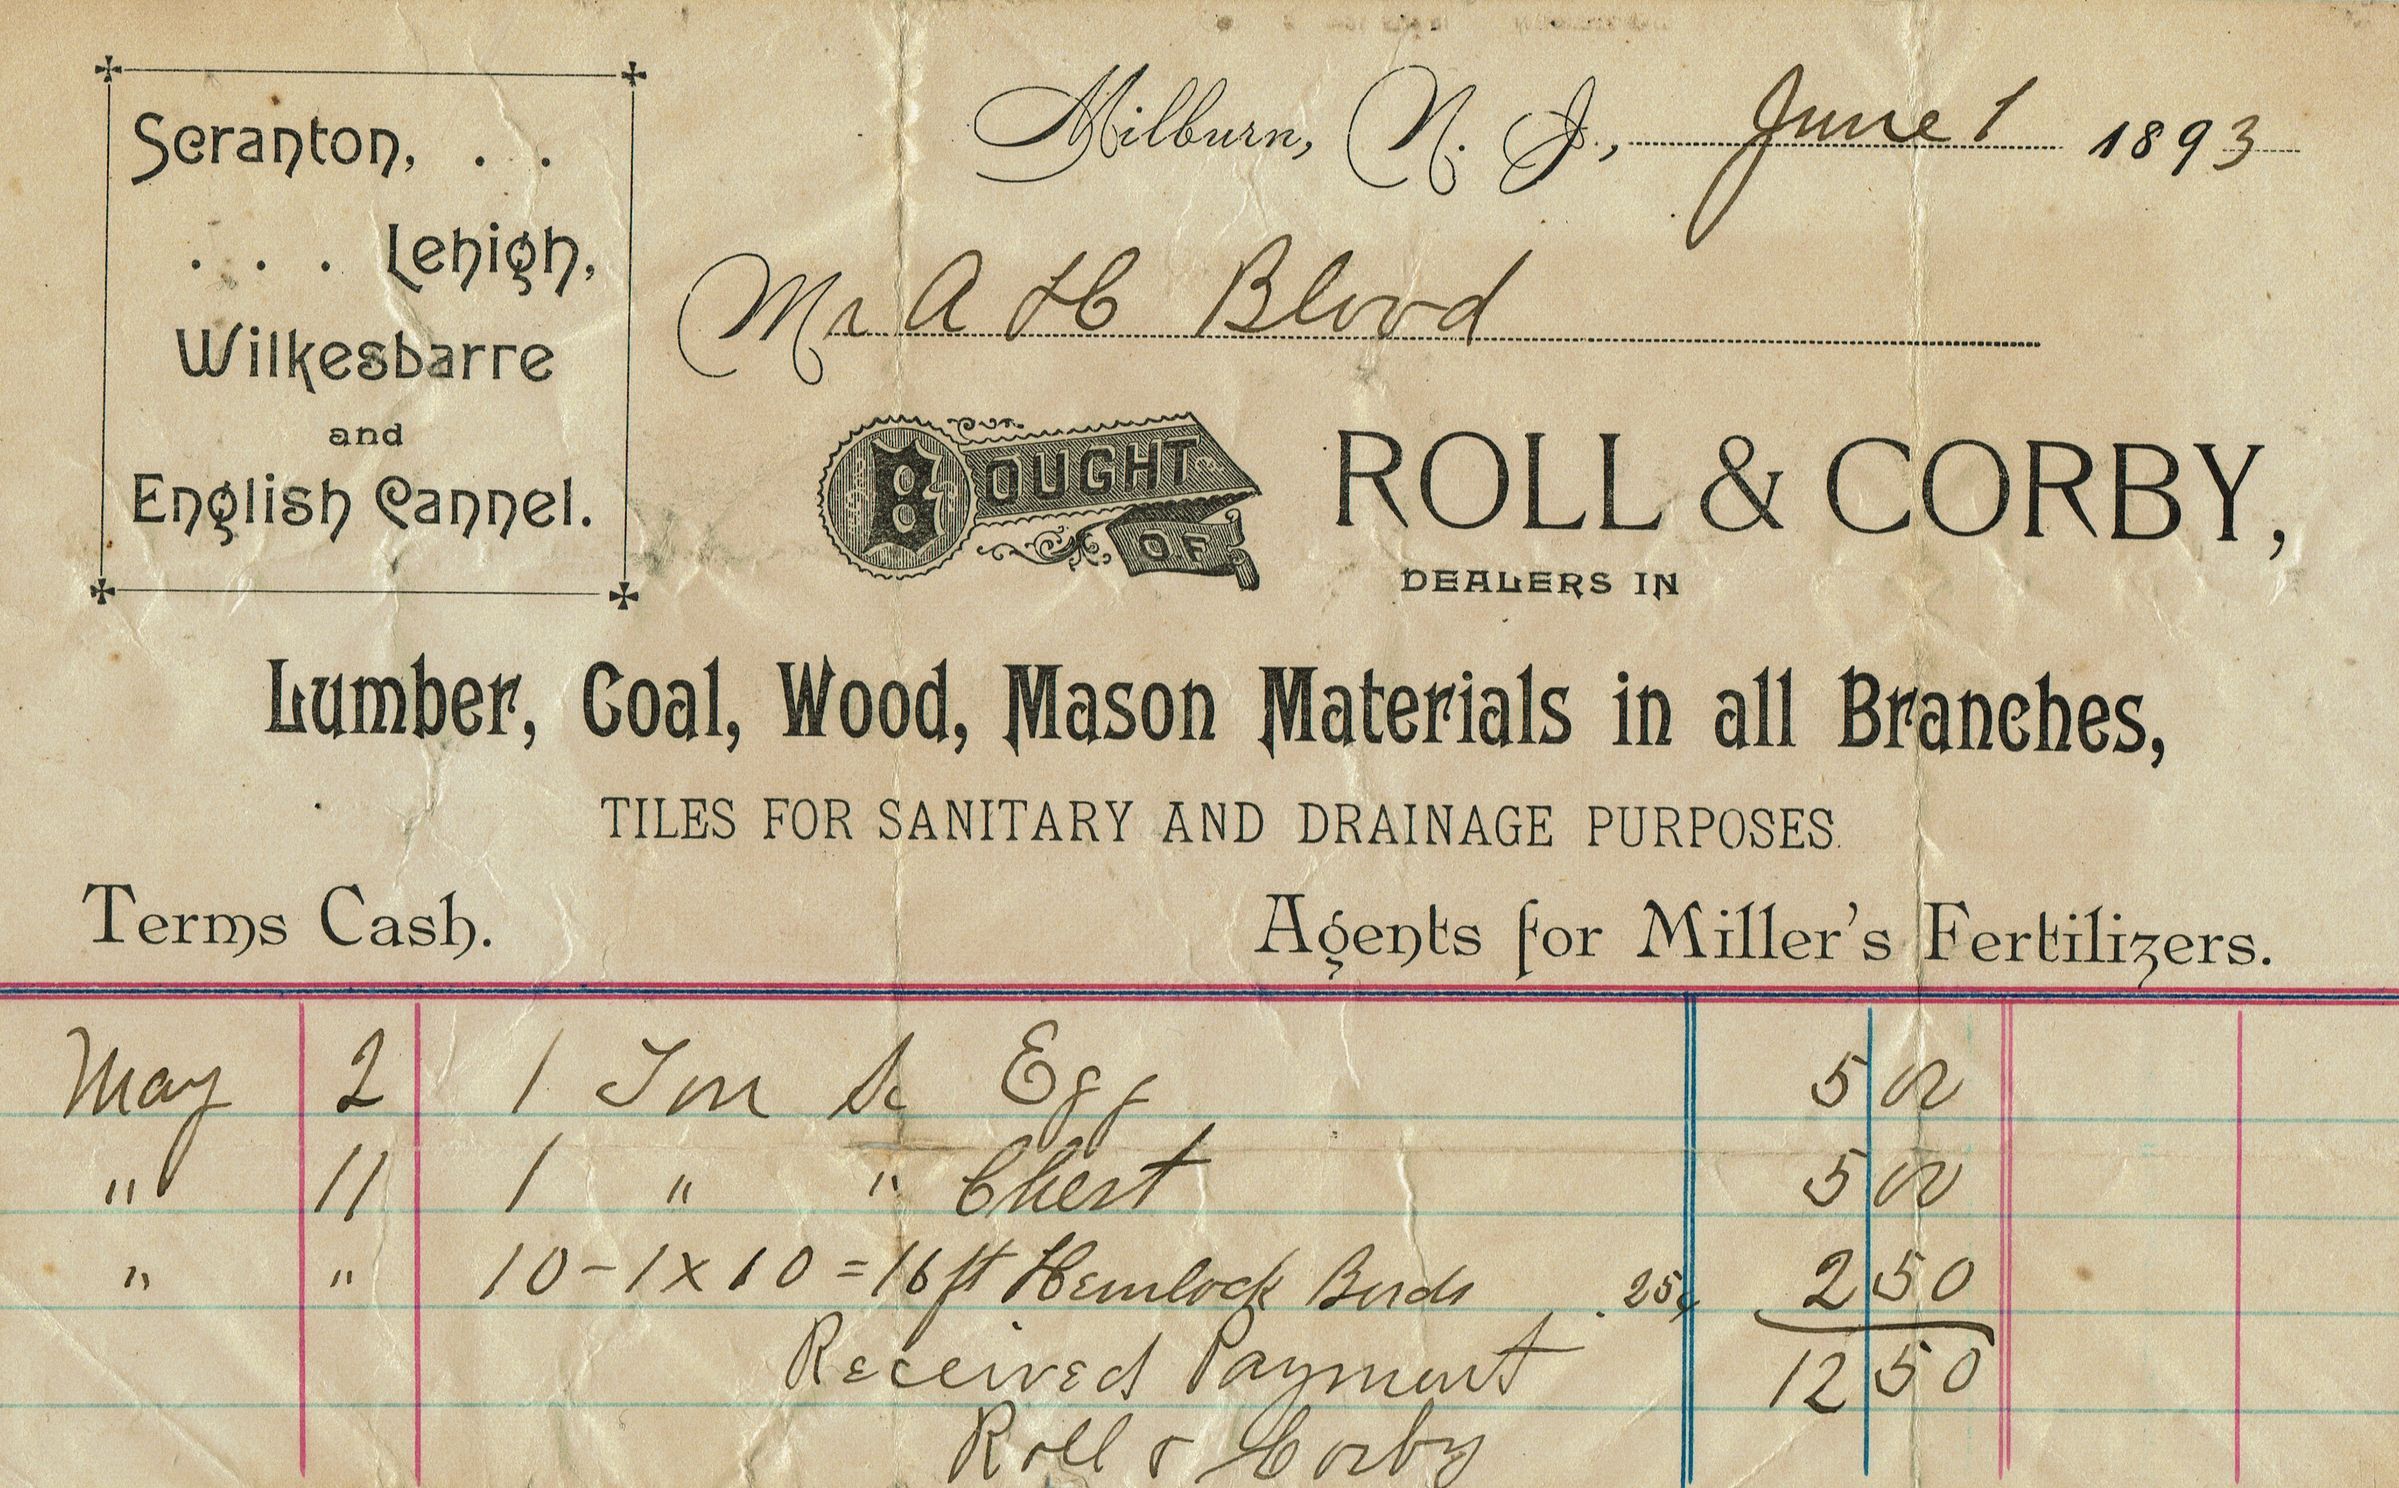 Scranton, . .
. . . Lehigh,
Wilkesbarre
and
English Cannel.
Milburn, N. J., June 1 1893
Mr A H Blood
BOUGHT OF ROLL & CORBY,
DEALERS IN
Lumber, Coal, Wood, Mason Materials in all Branches,
TILES FOR SANITARY AND DRAINAGE PURPOSES.
Terms Cash. Agents for Miller's Fertilizers.
May 2 1 Ton Sc Egg 5 00
" 11 1 " " Chest 5 00
" " 10 - 1 x 10 = 16 ft Hemlock Bords .25¢ 2 50
Received Payment 12 50
Roll & Corby